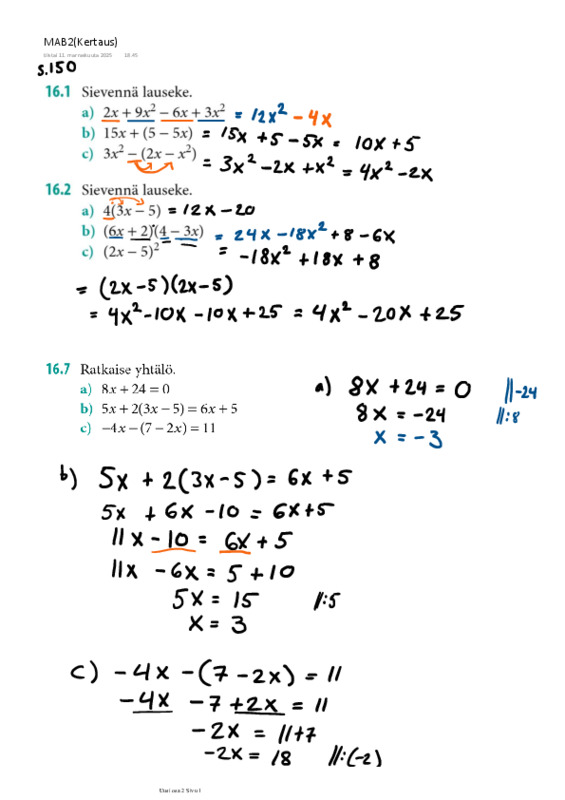 MAB2(Kertaus)
tiistai 11. marraskuuta 2025 18.45
s.150
16.1 Sievennä lauseke.
a) 2x + 9x² − 6x + 3x² = 12x² − 4x
b) 15x + (5 − 5x) = 15x + 5 − 5x = 10x + 5
c) 3x² − (2x − x²) = 3x² − 2x + x² = 4x² − 2x
16.2 Sievennä lauseke.
a) 4(3x − 5) = 12x − 20
b) (6x + 2)(4 − 3x) = 24x − 18x² + 8 − 6x
= −18x² + 18x + 8
c) (2x − 5)²
= (2x − 5)(2x − 5)
= 4x² − 10x − 10x + 25 = 4x² − 20x + 25
16.7 Ratkaise yhtälö.
a) 8x + 24 = 0
b) 5x + 2(3x − 5) = 6x + 5
c) −4x − (7 − 2x) = 11
a) 8x + 24 = 0 ||−24
8x = −24 ||:8
x = −3
b) 5x + 2(3x − 5) = 6x + 5
5x + 6x − 10 = 6x + 5
11x − 10 = 6x + 5
11x − 6x = 5 + 10
5x = 15 ||:5
x = 3
c) −4x − (7 − 2x) = 11
−4x − 7 + 2x = 11
−2x = 11 + 7
−2x = 18 ||:(−2)